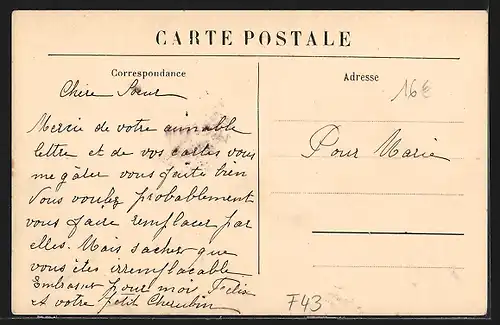 CARTE POSTALE
Correspondance
Adresse
16€
Chère Sœur
Mercie de votre aimable
lettre et de vos cartes vous
me gâter vous faite bien
Vous voulez probablement
vous faire remplacer par
elles. Mais sachez que
vous êtes irremplaçable
Embrasset pour moi Felix
et votre petit Cherubin
Pour Marie
F43